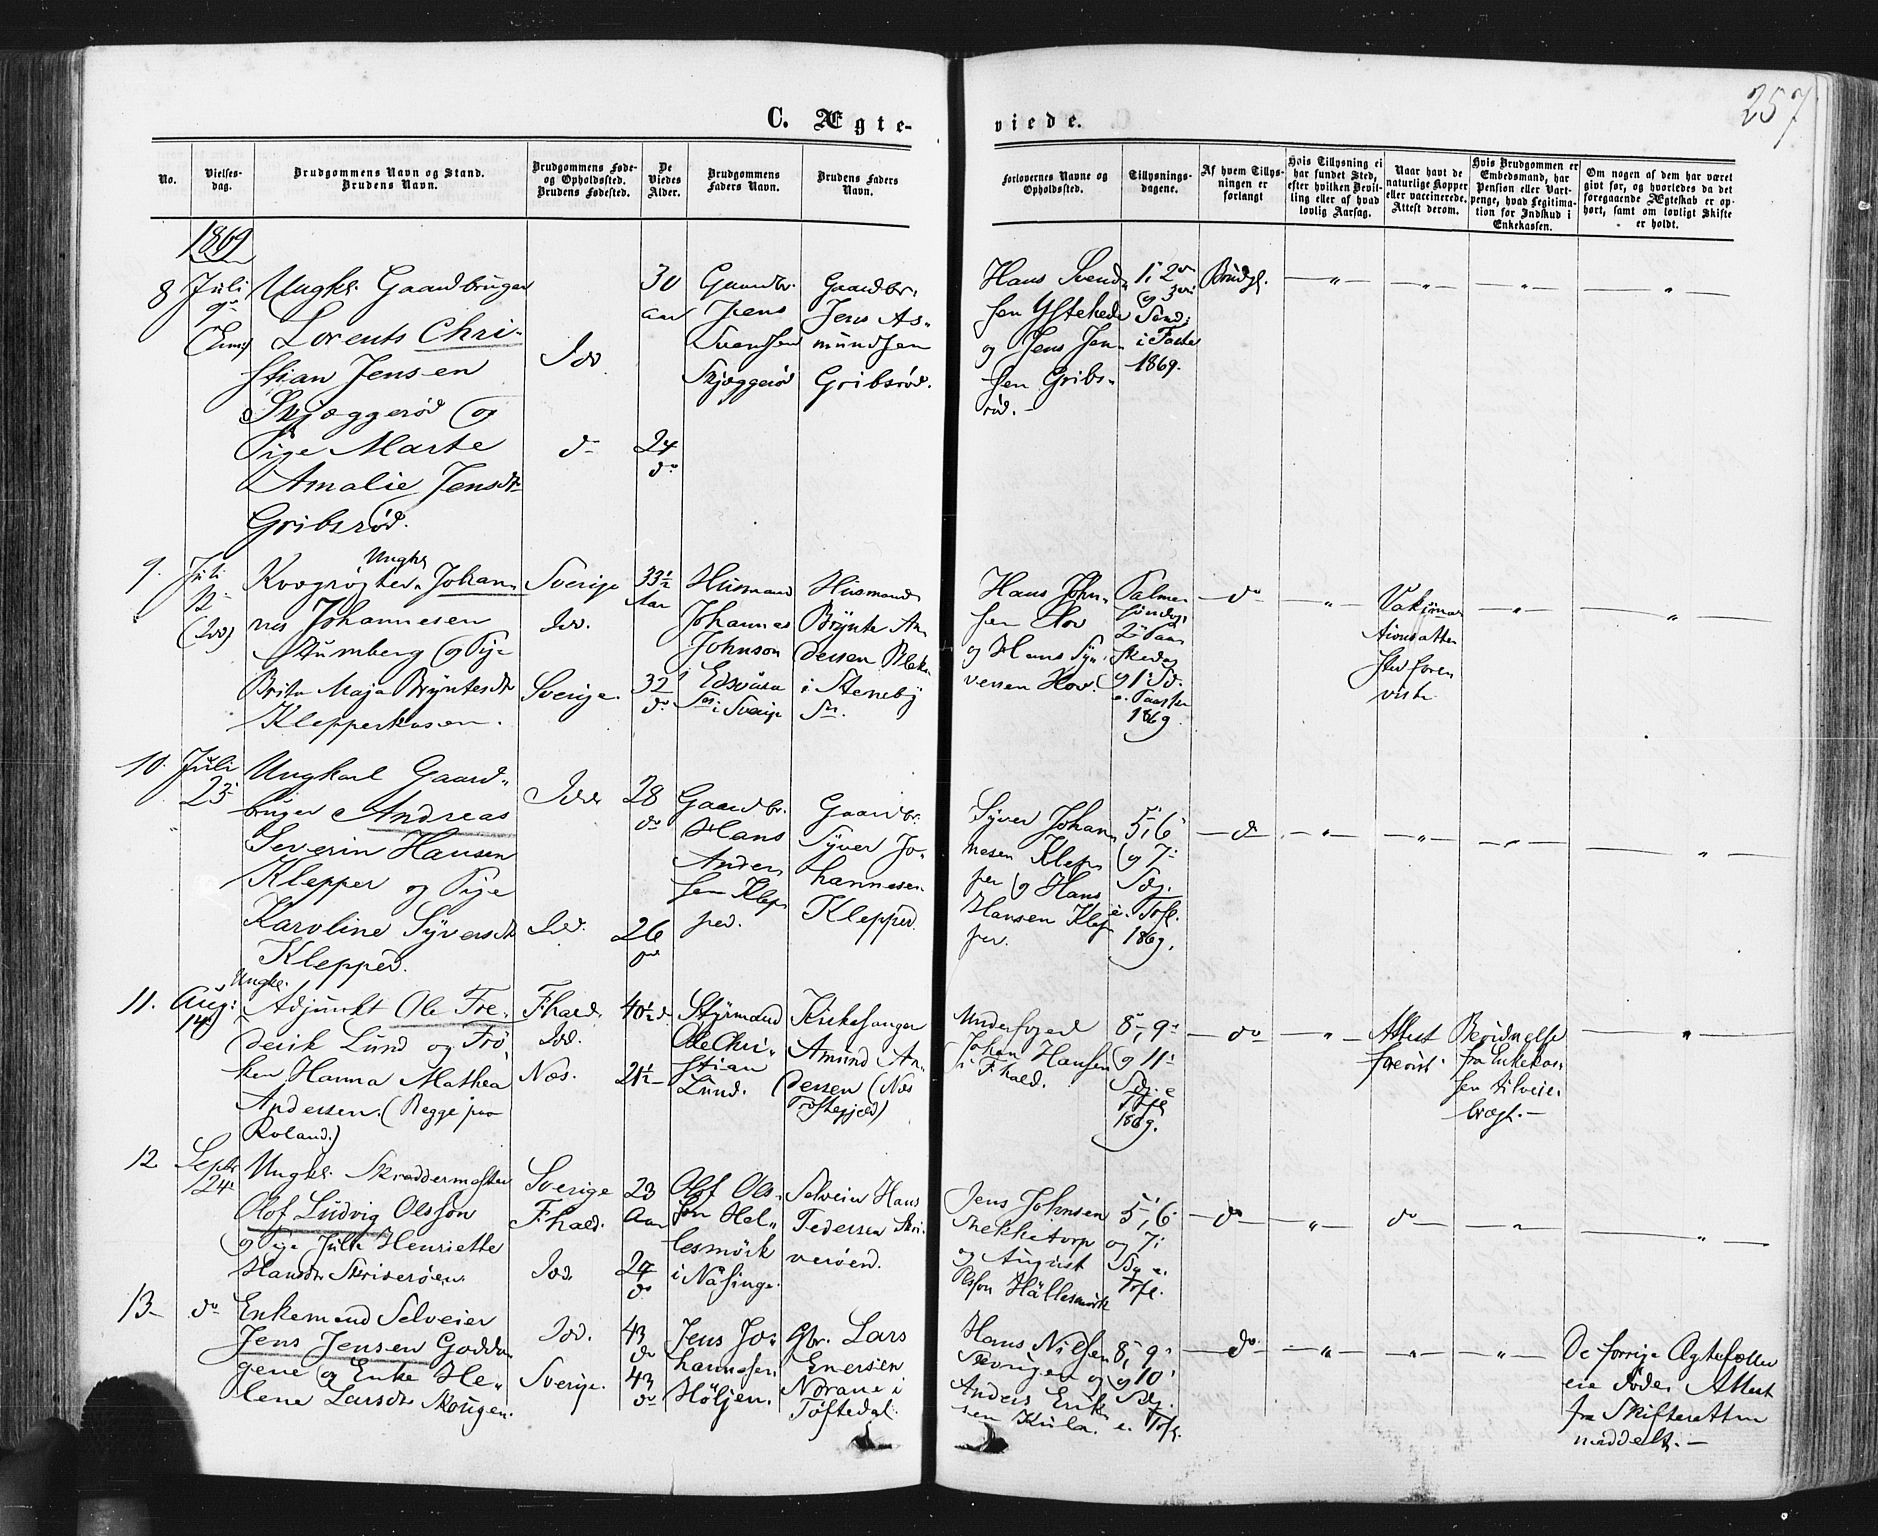 257
C. Ægte-
viede.
No.
Vielses-
dag.
Brudgommens Navn og Stand.
Brudens Navn.
Brudgommens Føde-
og Opholdssted.
Brudens Fødested.
De
Viedes
Alder.
Brudgommens
Faders Navn.
Brudens Faders
Navn.
Forlovernes Navne og
Opholdssted.
Tillysnings-
dagene.
Af hvem Tillys-
ningen er
forlangt
Hvis Tillysning ei
har fundet Sted,
efter hvilken Bevil-
ling eller af hvad
lovlig Aarsag.
Naar havt de
naturlige Kopper
eller vaccinerede.
Attest derom.
Hvis Brudgommen er
Embedsmand, har
Pension eller Vart-
penge, hvad Legitima-
tion for Indskud i
Enkekassen.
Om nogen af dem har været
gift før, og hvorledes da det
foregaaende Ægteskab er op-
hørt, samt om lovligt Skifte
er holdt.
1869
8
Juli
9-
Ungk. Gaardbruger
Lorents Chri-
stian Jensen
Skjæggerød og
Pige Marte
Amalie Jensdtr
Gribsrød.
Idd.
d-
30
aar
24
do
Gaardbr.
Jens
Svendsen
Skjæggerød
Gaardbr.
Jens As-
mundsen
Gribsrød.
Hans Svend-
sen Ystehede
og Jens Jen-
sen Gribs-
rød.-
1, 2
og 3
Sønd.
i Faste
1869.
Brudg.
-"- -"- -"- -"-
9.
Juli
12-
(Idd)
Ungk.
Kvægrøgter Johan-
nes Johannesen
Stumberg og Pige
Brita Maja Bryntesdtr
Klepperkasen.
Sverige
Idd.
Sverige.
33½
Aar
32
do
Husmand
Johannes
Johnson
i Edsvåra
i Sverige
Husmand
Brynte An-
dersen Blek
i Steneby
Sn.
Hans John-
sen Hov
og Hans Sy-
versen Hov.
Palme
Søndag,
2 Paa-
skedag
og 1 Sd.
e. Paaske
1869.
-do- -"-
Vakcina-
tionsatte-
ster fore-
viste.
-"- -"-
10.
Juli
23-
Ungkarl Gaard-
bruger Andreas
Severin Hansen
Klepper og Pige
Karoline Syversdtr
Klepper.
Idd.
Idd.
28
do
26
do
Gaardbr.
Hans
Ander-
sen Klep-
per.
Gaardbr.
Syver Jo-
hannesen
Klepper.
Syver Johan-
nesen Klep-
per og Hans
Hansen Klep-
per.
5, 6
og 7-
Sdg.
e. Trf.
1869.
-d- -"- -"- -"- -"-
11.
Aug:
14
Ungk.
Adjunkt Ole Fre-
derik Lund og Frø-
ken Hanna Mathea
Andersen. (Begge paa
Roland.)
Fhald.
Idd.
Næs.
40½ d-
21½-
Styrmand
Ole Chri-
stian
Lund.
Kirkesanger
Amund An-
dersen (Næs
Præstegjeld)
Underfoged
Johan Hansen
i Fhald.
8-, 9-
og 11-
Sdg. e
Trf.
1869.
-do- -"-
Attest
forevist.
Bevidnelse
fra Enkekas-
sen tilveie-
bragt.-
-"-
12
Septbr
24.
Ungk. Skræddermester
Olof Ludvig Olsson
og Pige Julie Henriette
Hansdtr Skriverøen.
Sverige
Fhald.
Idd.
23
Aar
24
do
Olof Ols-
son Hel-
lesmörk
i Nåsinge.
Selveier Hans
Pedersen Skri-
verøen.
Jens Johnsen
Stekketorp
og August
Olsson Hällesmörk
5, 6
og 7-
Sdg e.
Trf.
-do- -"- do -"- -"-
13-
do
Enkemand Selveier
Jens Jensen Godde-
gene og Enke He-
lene Larsdtr Skougen.
Idd.
Sverige.
43
do
43
do
Jens Jo-
hannesen
Höljen.
Gbr. Lars
Enersen
Norane i
Töftedal.
Hans Nilsen
Skougen og
Anders Erik-
sen Kula.
8, 9-
og 10-
Sdg.
e. Trf.
-do- -"- -"- -"-
De forrige Ægtefæller
ere døde. Attest
fra Skifteretten
meddelt.-